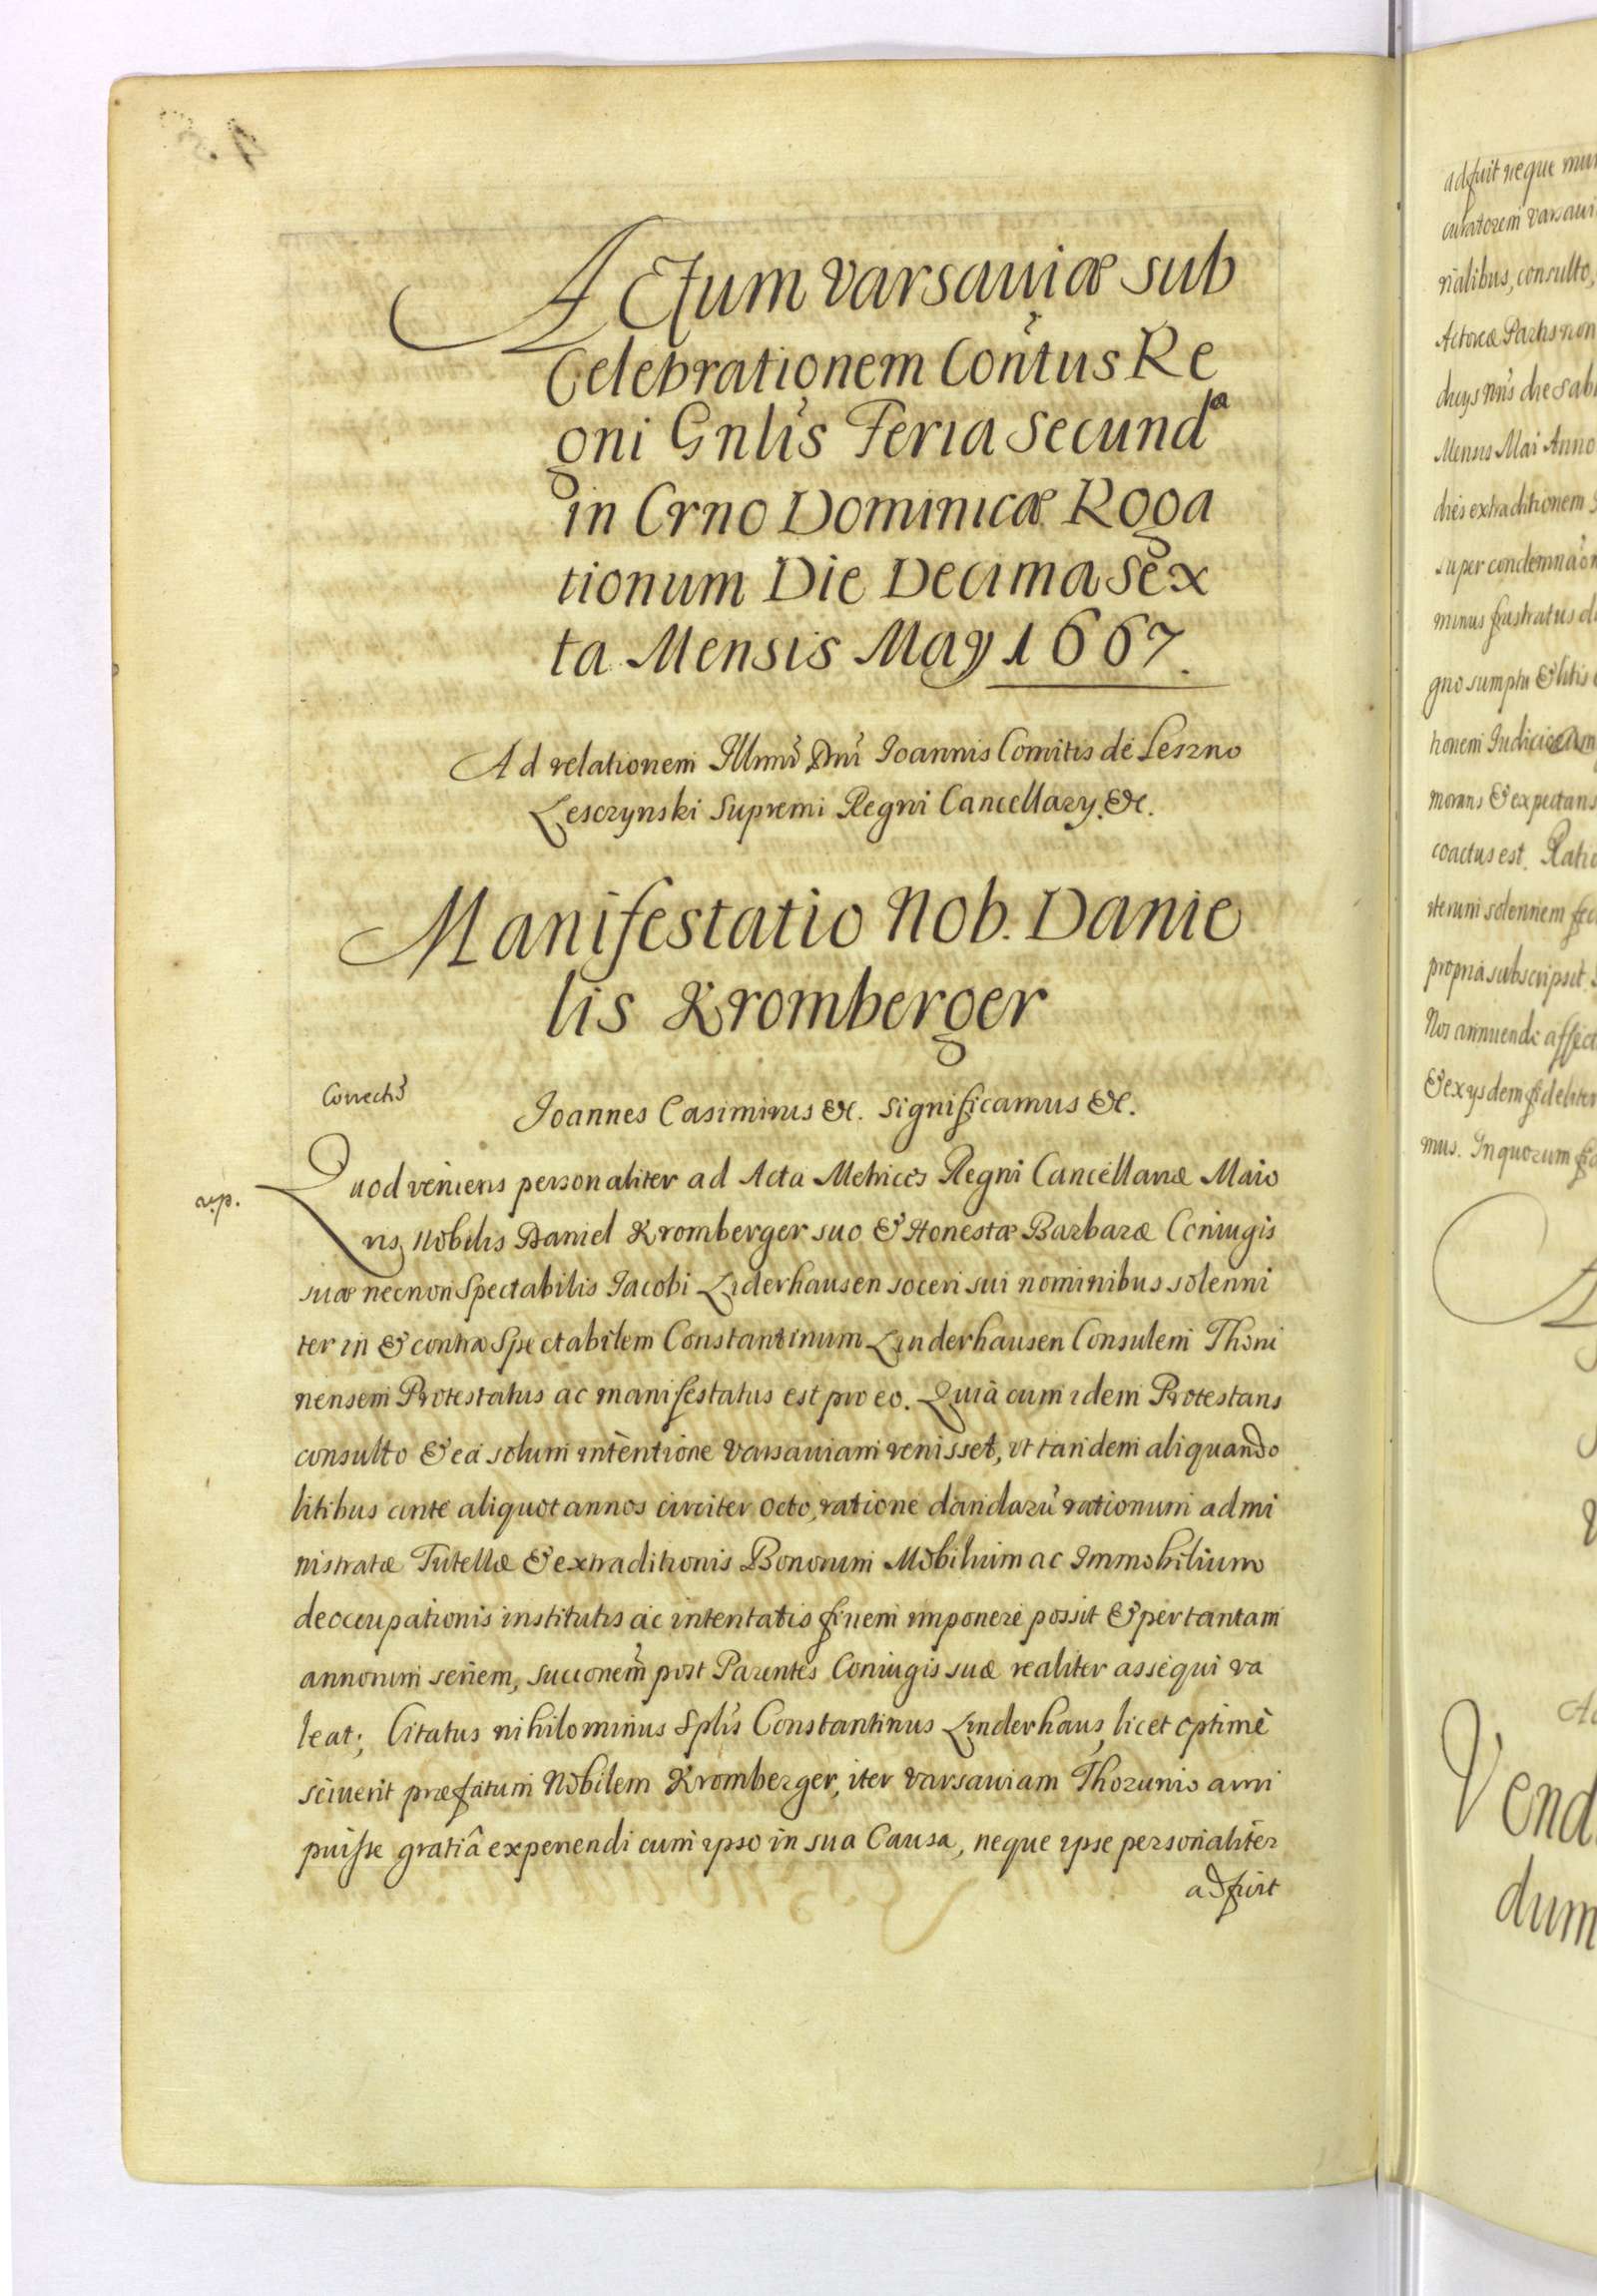 Actum Varsaviæ sub
Celebrationem Con̄tus Re
gni Gnlis Feria Secundᵃ
in Crno Dominicæ Roga
tionum Die Decima Sex
ta Mensis May 1667.
Ad relationem Illmi Dni Joannis Comitis de Leszno
Lesczynski Supremi Regni Cancellary. &c.
Manifestatio Nob. Danie
lis Kromberger
Correcta
Joannes Casimirus &c. significamus &c.
Quod veniens personaliter ad Acta Metrices Regni Cancellariæ Maio
rp.
ris, Nobilis Daniel Kromberger suo & Honestæ Barbaræ Coniugis
suæ necnon Spectabilis Jacobi Liderhausen soceri sui nominibus solenni
ter in & contra Spectabilem Constantinum Linderhausen Consulem Thoru
nensem Protestatus ac manifestatus est pro eo. Quià cum idem Protestans
consulto & eâ solum intentione Varsaviam venisset, vt tandem aliquando
litibus ante aliquot annos circiter octo, ratione dandarū rationum admi
nistratæ Tutellæ & extraditionis Bonorum Mobilium ac Immobilium
deoccupationis institutis ac intentatis finem imponere possit & per tantam
annorum seriem, succonem post Parentes Coniugis suæ realiter assequi va
leat; Citatus nihilominus Splis Constantinus Linderhaus, licet optimè
sciverit præfatum Nobilem Kromberger, iter Varsaviam Thorunio arri
puisse gratiâ experiendi cum ipso in sua Causa, neque ipse personaliter
adfuit
adfuit neque
curatorem
rialibus, consulto,
Actoreæ Partis non
Mensis Mai Anno
dies extraditionem
super
minus frustratus
gno sumptu & litis
morans & expectans
coactus est.
iterum solennem
propria subscripsit.
Nos annuendo
& ex ysdem fideliter
mus. In quorum
Vend
dum